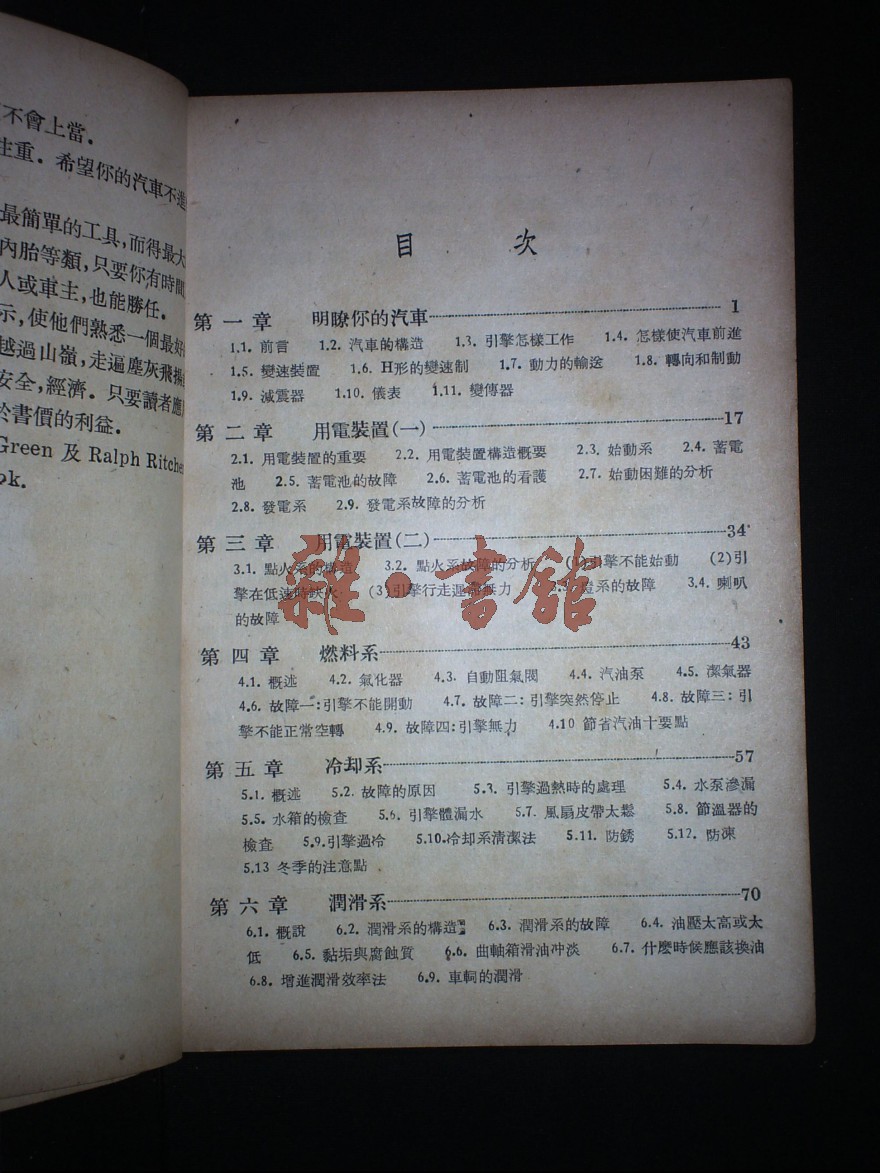 不會上當.
注重. 希望你的汽車不進
最簡單的工具,而得最大
內胎等類,只要你有時間
人或車主,也能勝任.
示,使他們熟悉一個最好
越過山嶺,走遍塵灰飛揚
安全,經濟. 只要讀者應
於書價的利益.
Green 及 Ralph Ritche
ok.
目 次
第一章 明瞭你的汽車 1
1.1. 前言 1.2. 汽車的構造 1.3. 引擎怎樣工作 1.4. 怎樣使汽車前進
1.5. 變速裝置 1.6. H形的變速制 1.7. 動力的輸送 1.8. 轉向和制動
1.9. 減震器 1.10. 儀表 1.11. 變傳器
第二章 用電裝置(一) 17
2.1. 用電裝置的重要 2.2. 用電裝置構造概要 2.3. 始動系 2.4. 蓄電
池 2.5. 蓄電池的故障 2.6. 蓄電池的看護 2.7. 始動困難的分析
2.8. 發電系 2.9. 發電系故障的分析
第三章 用電裝置(二) 34
3.1. 點火系的構造 3.2. 點火系故障的分析 (1)引擎不能始動 (2)引
擎在低速時缺火 (3)引擎行走遲滯無力 3.3. 系的故障 3.4. 喇叭
的故障
雜·書館
第四章 燃料系 43
4.1. 概述 4.2. 氣化器 4.3. 自動阻氣閥 4.4. 汽油泵 4.5. 潔氣器
4.6. 故障一:引擎不能開動 4.7. 故障二:引擎突然停止 4.8. 故障三:引
擎不能正常空轉 4.9. 故障四:引擎無力 4.10 節省汽油十要點
第五章 冷却系 57
5.1. 概述 5.2. 故障的原因 5.3. 引擎過熱時的處理 5.4. 水泵滲漏
5.5. 水箱的檢查 5.6. 引擎體漏水 5.7. 風扇皮帶太鬆 5.8. 節溫器的
檢查 5.9.引擎過冷 5.10.冷却系清潔法 5.11. 防銹 5.12. 防凍
5.13 冬季的注意點
第六章 潤滑系 70
6.1. 概說 6.2. 潤滑系的構造 6.3. 潤滑系的故障 6.4. 油壓太高或太
低 6.5. 黏垢與腐蝕質 6.6. 曲軸箱滑油冲淡 6.7. 什麼時候應該換油
6.8. 增進潤滑效率法 6.9. 車輌的潤滑